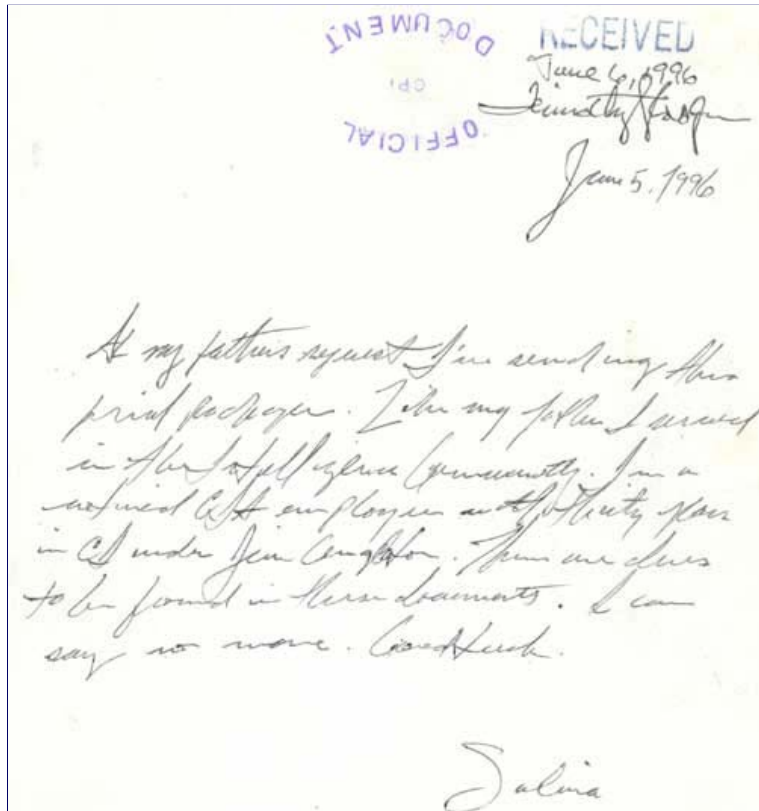 OFFICIAL DOCUMENT
CPI
RECEIVED
June 6, 1996
Timothy
June 5, 1996
At my fathers request I'm sending this
package. Like my father I served
in the Intelligence Community. I'm a
retired CIA employee with thirty years
in CI under Jim Angleton. There are clues
to be found in these documents. I can
say no more. Good Luck.
Salina